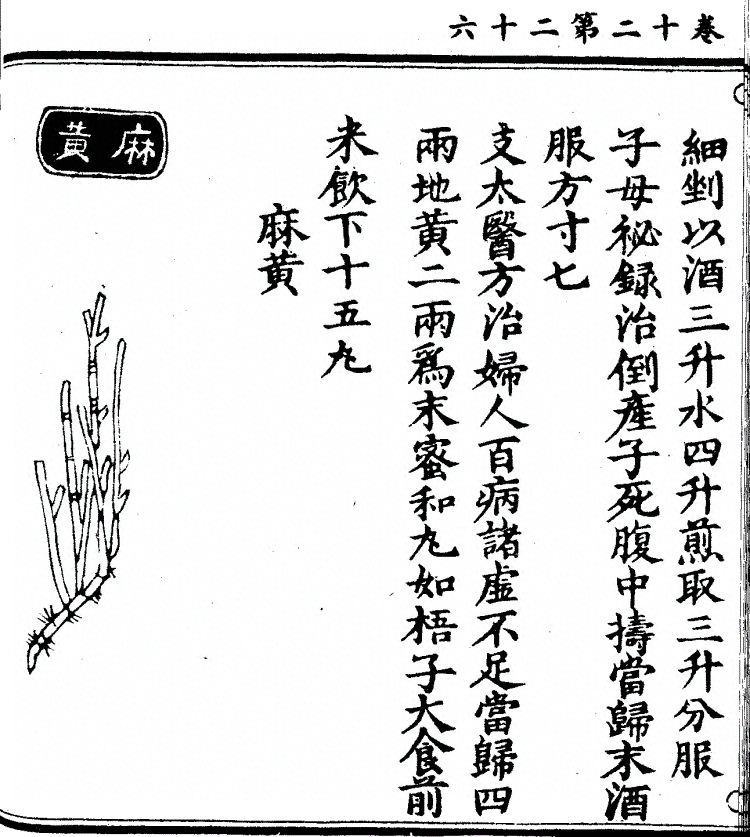 卷十二第二十六
細剉以酒三升水四升煎取三升分服
子母祕録治倒產子死腹中擣當歸末酒
服方寸匕
支太醫方治婦人百病諸虛不足當歸四
兩地黃二兩爲末蜜和丸如梧子大食前
米飲下十五丸
麻黃
麻黃